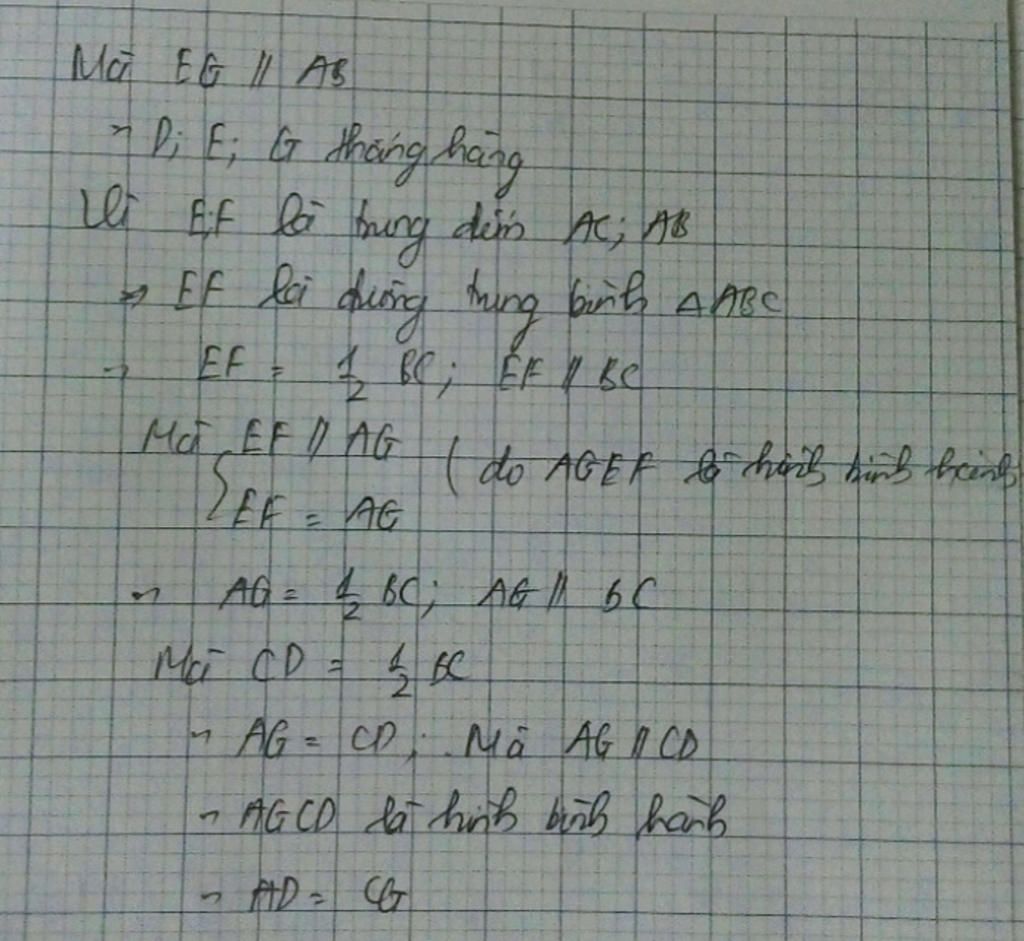 Mà EG // AB
→ D; E; G thẳng hàng
Vì E;F là trung điểm AC; AB
=> EF là đường trung bình △ABC
→ EF = 1/2 BC; EF // BC
Mà { EF // AG
EF = AG (do AGEF là hình bình hành
→ AG = 1/2 BC; AG // BC
Mà CD = 1/2 BC
→ AG = CD; Mà AG // CD
→ AGCD là hình bình hành
→ AD = CG